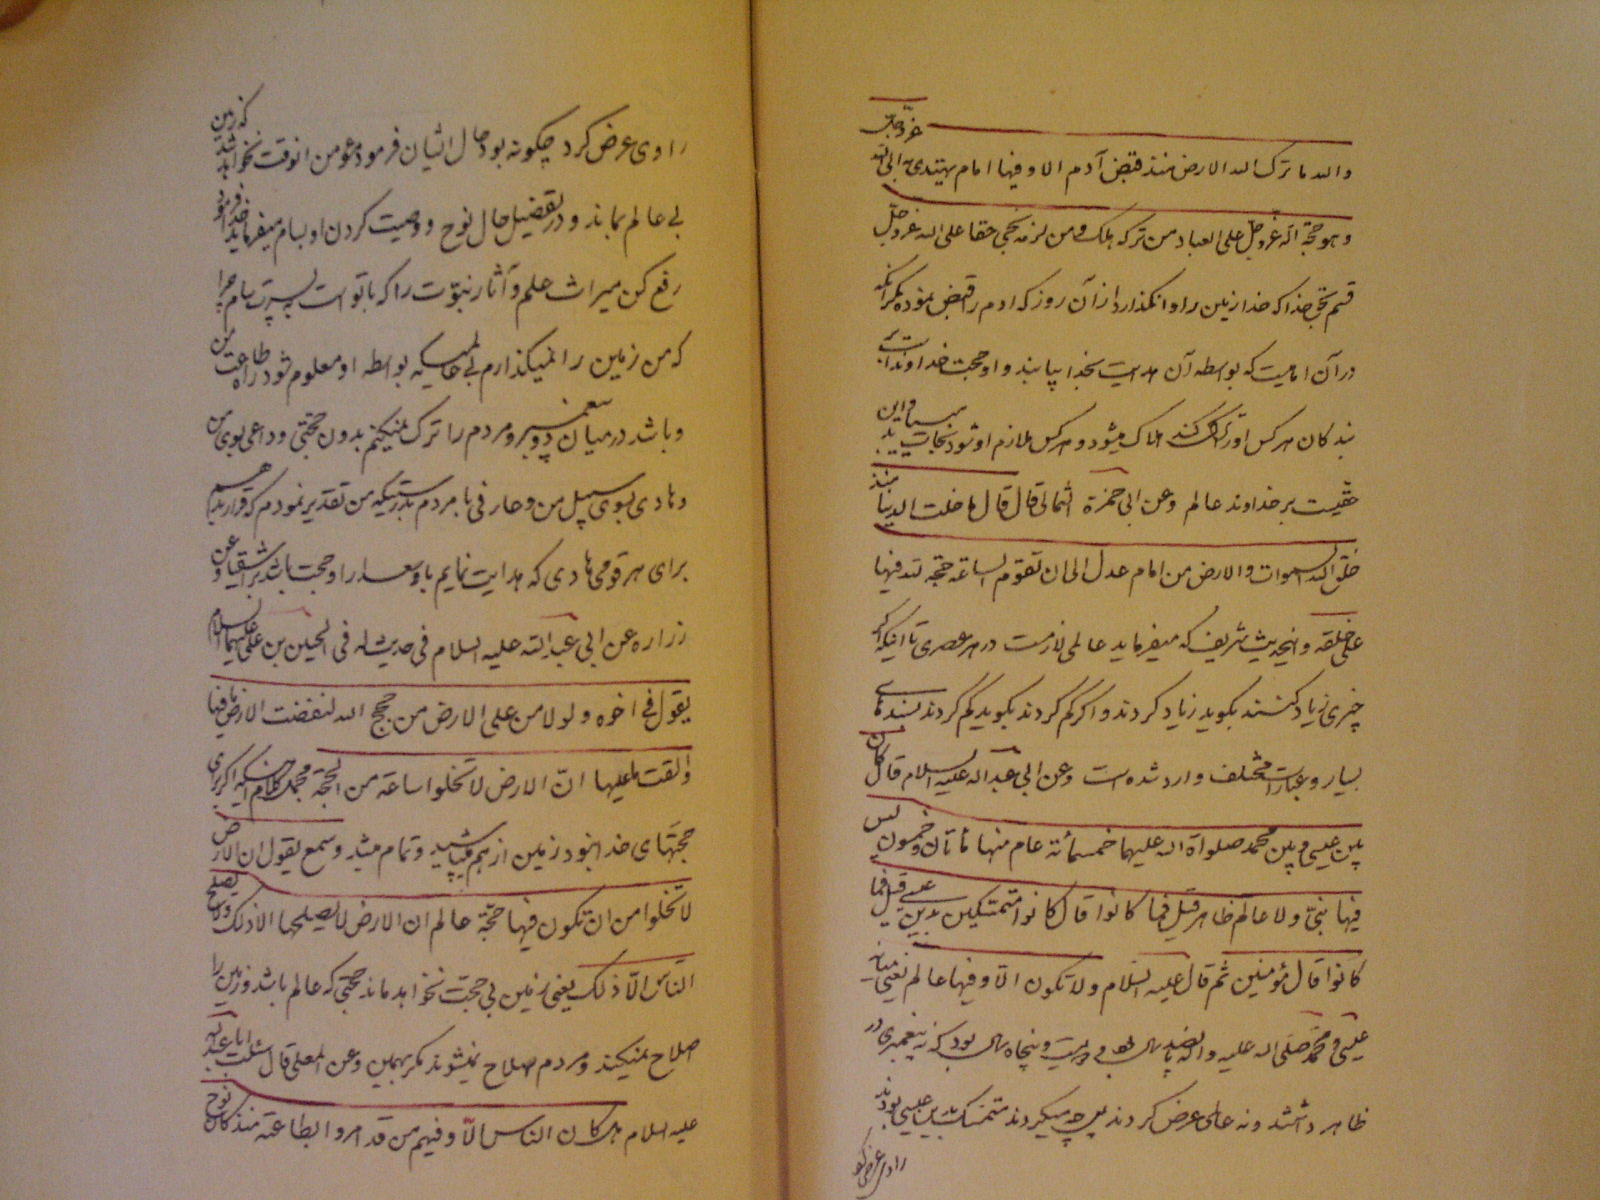 والله ما ترک الله الارض منذ قبض آدم الا و فیها امام یهتدی به الی الله عزوجل
و هو حجة الله عزوجل علی العباد من ترکه هلک و من لزمه نجی حقا علی الله عزوجل
قسم بحق خدا که خدا زمین را وانگذارد از آن روز که ادم را قبض نموده مگر آنکه
در آن امامیست که بواسطه آن هدایت بخدا بیابند و او حجت خداوند است بر
بندگان هر کس او را ترک کند هلاک میشود و هر کس ملازم او شود نجات مییابد و این
حقیست بر خداوند عالم وعن ابی حمزة الثمالی قال قال ما خلت الدنیا منذ
خلق الله السموات والارض من امام عدل الی ان تقوم الساعة حجة لله فیها
علی خلقه و اینحدیث شریف که میفرماید عالمی لازمست در هر عصری تا اینکه اگر
چیزی زیاد کنند بگوید زیاد کردند و اگر کم کردند بگوید کم کردند بسندهای
بسیار و عبارات مختلف وارد شده است وعن ابی عبدالله علیه السلام قال کان
بین عیسی و بین محمد صلوات الله علیهما خمسمائة عام منها مأتان و خمسون لیس
فیها نبیّ ولا عالم ظاهر قیل فما کانوا قال کانوا متمسکین بدین عیسی قیل فما
کانوا قال مؤمنین ثم قال علیه السلام ولا تکون الا و فیها عالم یعنی میانه
عیسی و محمد صلی الله علیه و اله پانصد سال بود دویست و پنجاه سال بود که نه پیغمبری در
ظاهر داشتند و نه عالمی عرض کردند پس چه میکردند متمسک بدین عیسی بودند
راوی عرض کرد
راوی عرض کرد چگونه بود حال ایشان فرمود مؤمن انوقت نخواهد شد که زمین
بی عالم بماند و در تفضیل حال نوح و وصیت کردن او بسام میفرماید خدا فرمود
رفع کن میراث علم و آثار نبوّت را که با توست به پسرت سام چرا
که من زمین را نمیگذارم بی عالمیکه بواسطه او معلوم شود راه طاعت من
و باشد در میان دو پیغمبر و مردم را ترک نمیکنم بدون حجتی و داعی بسوی من
و هادی بسوی سبیل من و عارفی با مردم بدرستیکه من تقدیر نمودم که قرار بدهم
برای هر قومی هادی که هدایت نمایم باو سعدا را و حجت باشد بر اشقیا و عن
زراره عن ابی عبدالله علیه السلام فی حدیث له فی الحسین بن علی علیهما السلام
یقول فی اخره و لولا من علی الارض من حجج الله لنفضت الارض ما فیها
والقت ما علیها انّ الارض لا تخلوا ساعة من الحجة مجمل کلام اینکه اگر برای
حجتهای خدا نبود زمین از هم میپاشید و تمام میشد وسمع یقول ان الارض
لا تخلوا من ان تکون فیها حجّة عالم ان الارض لا یصلحها الا ذلک ولا یصلح
الناس الّا ذلک یعنی زمین بی حجت نخواهد ماند حجتی که عالم باشد و زمین را
اصلاح نمیکند و مردم صلاح نمیشوند مگر بهمین وعن المعلی قال سئلت ابا عبدالله
علیه السلام هل کان الناس الّا و فیهم من قد امروا بطاعته منذ کان نوح